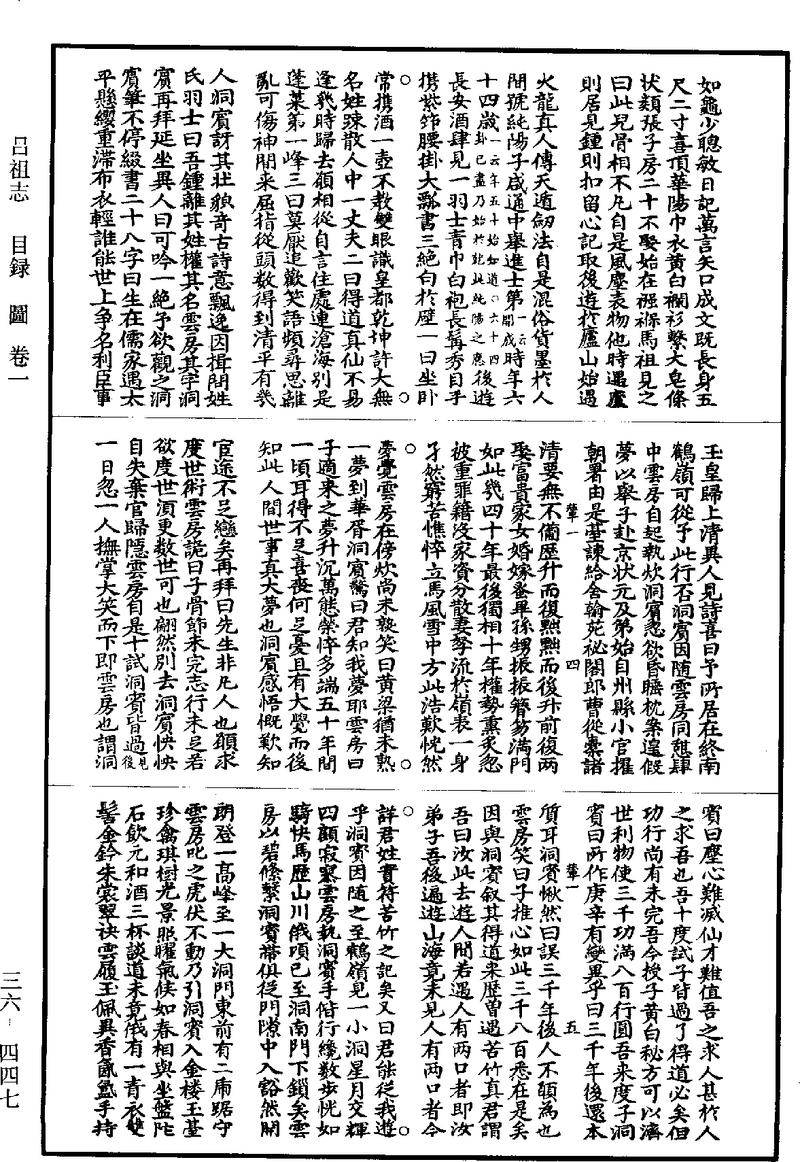 呂祖志 目録 圖 卷一
如龜少聰敏日記萬言矢口成文既長身五
尺二寸喜頂華陽巾衣黃白襴衫繫大皂絛
狀類張子房二十不娶始在襁褓馬祖見之
曰此兒骨相不凡自是風塵表物他時遇廬
則居見鍾則扣留心記取後遊於廬山始遇
火龍真人傳天遁劒法自是混俗貨墨於人
間號純陽子咸通中舉進士第一云開成時年六
十四歲一云年五十始知道○六十四卦已盡乃始於乾此純陽之應後遊
長安酒肆見一羽士青巾白袍長髯秀目手
携紫筇腰掛大瓢書三絕句於壁一曰坐卧
○ ○
常携酒一壺不教雙眼識皇都乾坤許大無
名姓疎散人中一丈夫二曰得道真仙不易
逢幾時歸去願相從自言住處連滄海别是
蓬萊第一峰三曰莫厭追歡笑語頻尋思離
亂可傷神閒來屈指從頭數得到清平有幾
人洞賓訝其狀貌竒古詩意飄逸因揖問姓
氏羽士曰吾鍾離其姓權其名雲房其字洞
賓再拜延坐異人曰可吟一絕予欲觀之洞
賓筆不停綴書二十八字曰生在儒家遇太
平懸纓重滯布衣輕誰能世上争名利臣事
玉皇歸上清異人見詩喜曰予所居在終南
鶴嶺可從予此行否洞賓因随雲房同憇肆
中雲房自起執炊洞賓忽欲昏睡枕案遑假
夢以舉子赴京狀元及第始自州縣小官擢
朝署由是臺諫給舍翰苑祕閣郎曹從橐諸
卷一 四
清要無不備歷升而復黜黜而後升前後兩
娶富貴家女婚嫁蚤畢孫甥振振簪笏滿門
如此幾四十年最後獨相十年權勢熏炙忽
被重罪籍沒家資分散妻孥流於嶺表一身
孑然窮苦憔悴立馬風雪中方此浩歎恍然
○ ○
夢覺雲房在傍炊尚未熟笑曰黃粱猶未熟
一夢到華胥洞賓驚曰君知我夢耶雲房曰
子適来之夢升沉萬態榮悴多端五十年間
一頃耳得不足喜喪何足憂且有大覺而後
知此人間世事真大夢也洞賓感悟慨歎知
宦途不足戀矣再拜曰先生非凡人也願求
度世術雲房詭曰子骨節未完志行未足若
欲度世湏更数世可也翩然别去洞賓怏怏
自失棄官歸隱雲房自是十試洞賓皆過見後
一日忽一人撫掌大笑而下即雲房也謂洞
賓曰塵心難滅仙才難值吾之求人甚於人
之求吾也吾十度試子皆過了得道必矣但
功行尚有未完吾今授子黃白秘方可以濟
世利物使三千功滿八百行圓吾来度子洞
賓曰所作庚辛有變異乎曰三千年後還本
卷一 五
質耳洞賓愀然曰誤三千年後人不願為也
雲房笑曰子推心如此三千八百悉在是矣
因與洞賓叙其得道来歷曾遇苦竹真君謂
吾曰汝此去遊人間若遇人有两口者即汝
弟子吾後遍遊山海竟未見人有两口者今
○ ○
詳君姓實符苦竹之記矣又曰君能從我遊
乎洞賓因随之至鶴嶺見一小洞星月交輝
四顧寂寥雲房執洞賓手偕行纔数步恍如
騎快馬歷山川俄頃已至洞南門下鎖矣雲
房以碧絛繫洞賓帶俱從門隙中入豁然開
朗登一高峰至一大洞門東前有二虎踞守
雲房叱之虎伏不動乃引洞賓入金樓玉臺
珍禽琪樹光景照曜氣候如春相與坐盤陀
石飲元和酒三杯談道未竟俄有一青衣雙
髻金鈴朱裳翠袂雲履玉佩異香氤氳手持
三六－四四七